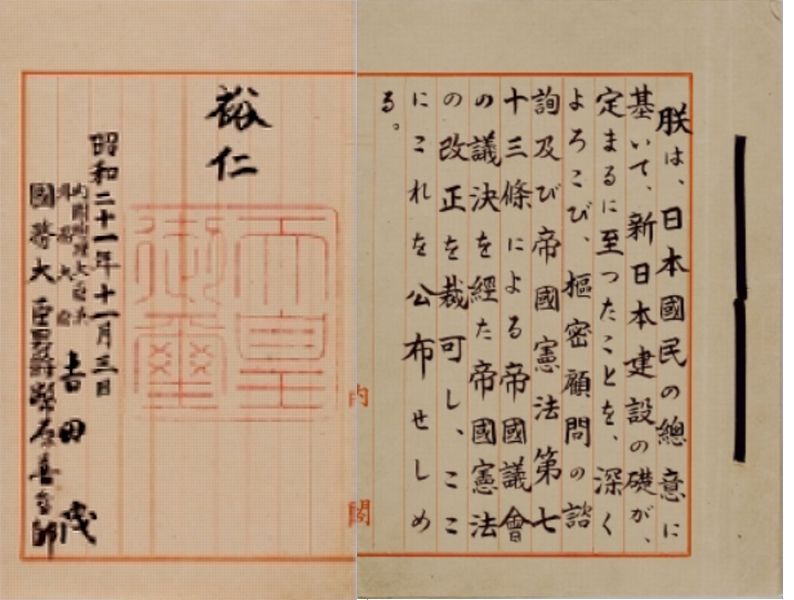 朕は、日本國民の總意に
基いて、新日本建設の礎が、
定まるに至つたことを、深く
よろこび、樞密顧問の諮
詢及び帝國憲法第七
十三條による帝國議會
の議決を經た帝國憲法
の改正を裁可し、ここ
にこれを公布せしめ
る。
裕仁
天皇御璽
昭和二十一年十一月三日
内閣總理大臣兼
外務大臣
吉田茂
國務大臣男爵幣原喜重郎
内閣